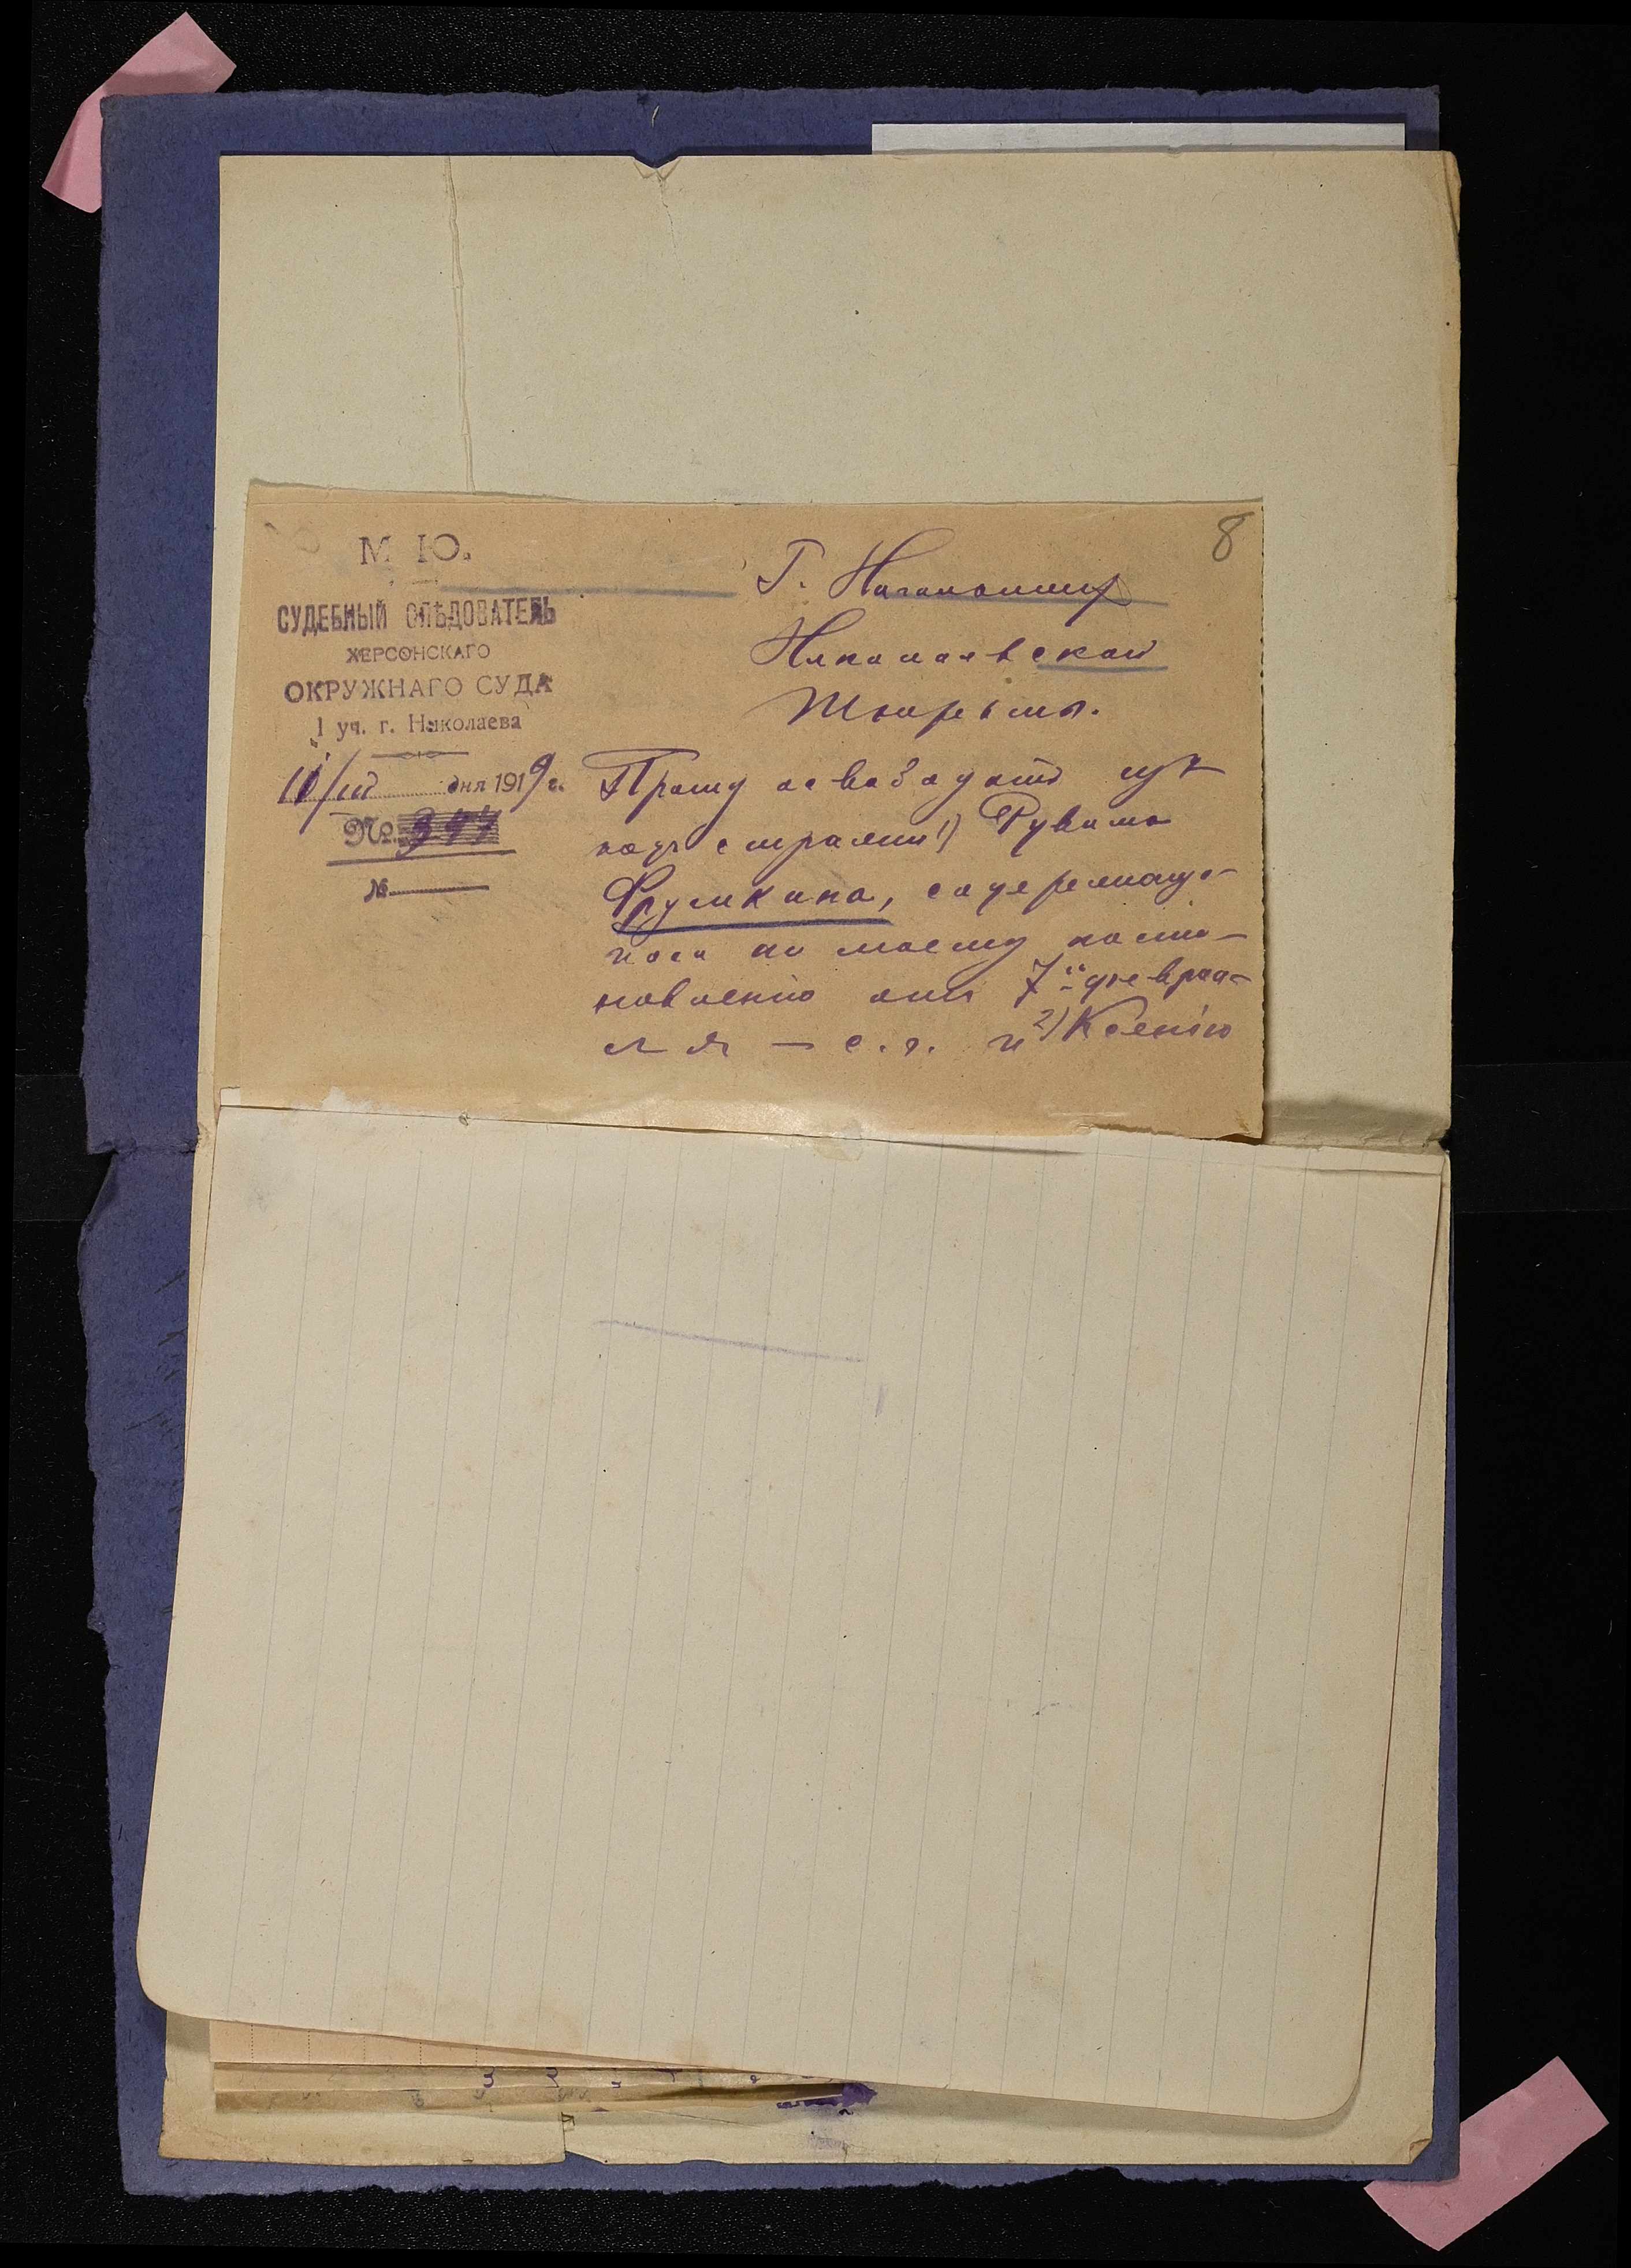 8
М Ю.
СУДЕБНЫЙ СЛѢДОВАТЕЛЬ
ХЕРСОНСКАГО
ОКРУЖНАГО СУДА
1 уч. г. Николаева
11/III дня 1919 г.
№ 347
№
Г. Начальнику
Николаевской
Тюрьмы.
Прошу освободить изъ
подъ стражи 1) Рувима
Фрумкина, содержаще-
гося по моему поста-
новленію отъ 7" февра-
ля – с.г. и 2) Ксенію